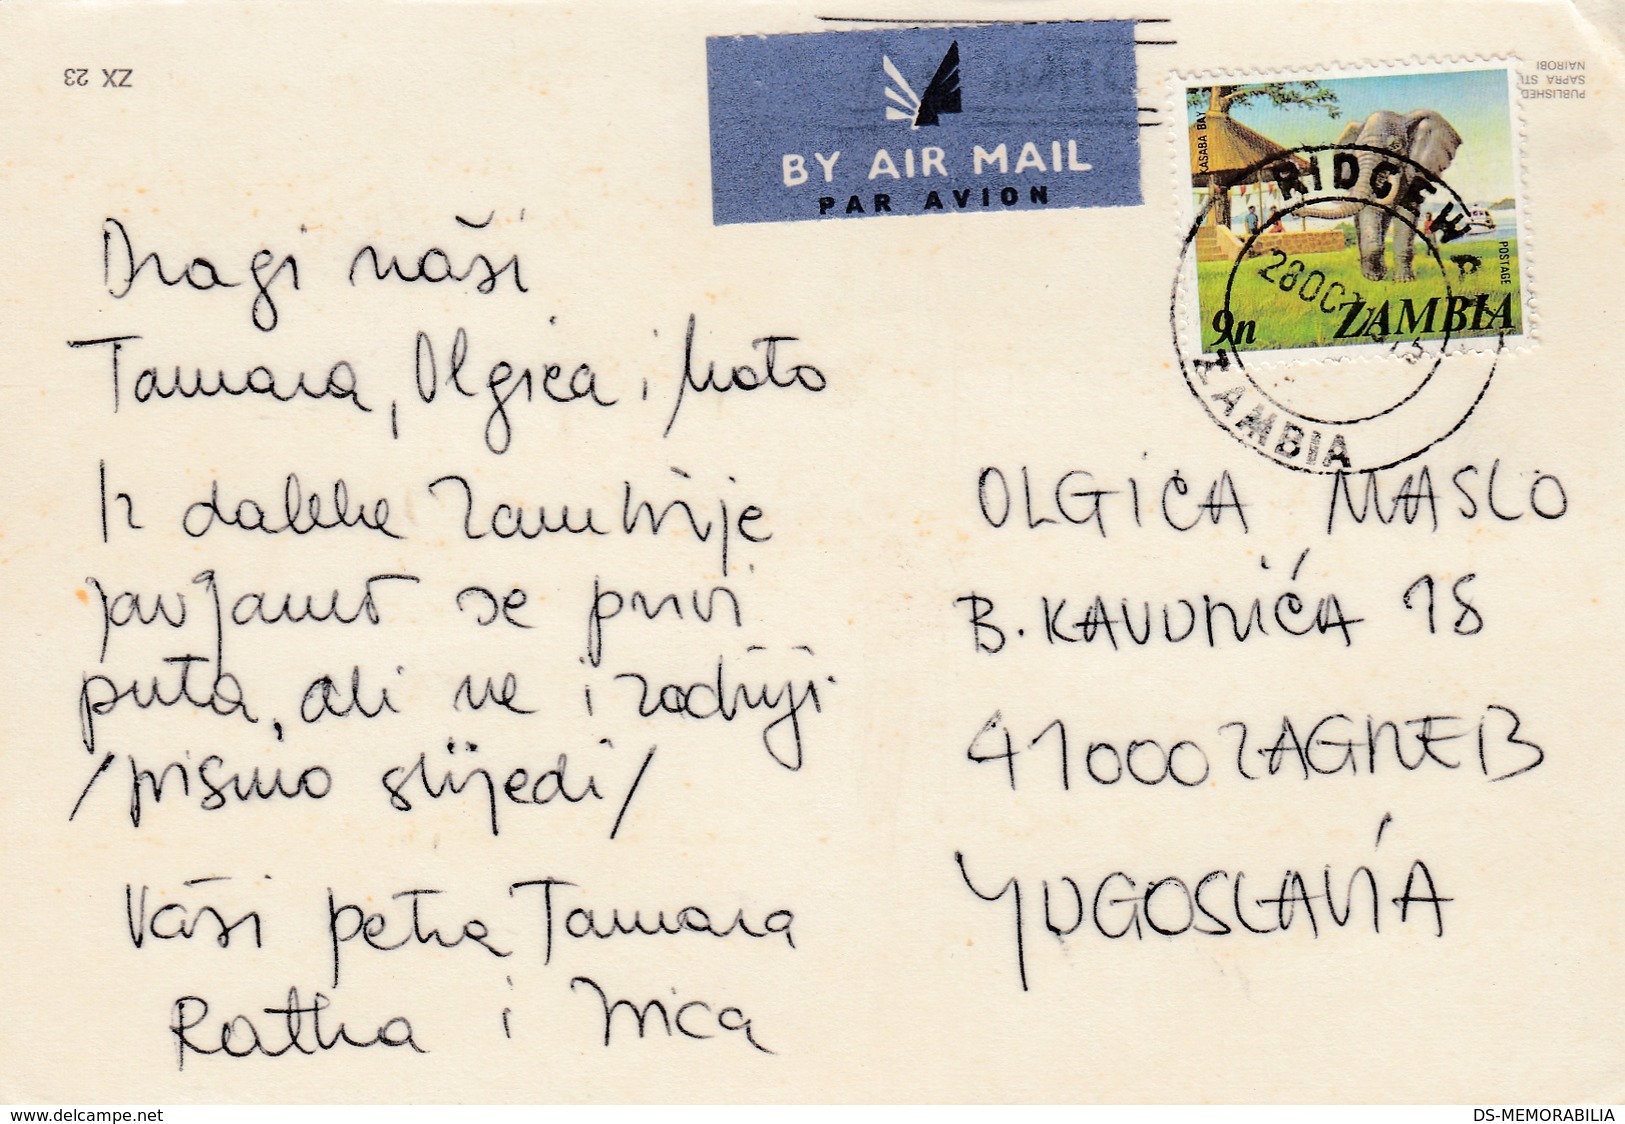 ZX 23
BY AIR MAIL
PAR AVION
PUBLISHED
SAPRA ST
NAIROBI
KASABA BAY
POSTAGE
9n ZAMBIA
RIDGEWA
28 OC
ZAMBIA
Dragi naši
Tamara, Olgica i Mato
Iz daleke Zambije
javjamo se prvi
puta, ali ne i zadnji
/pismo slijedi/
Vaši petra Tamara
Ratka i Ivica
OLGICA MASLO
B. KAVURIĆA 18
41000 ZAGREB
YUGOSLAVIA
www.delcampe.net
DS-MEMORABILIA